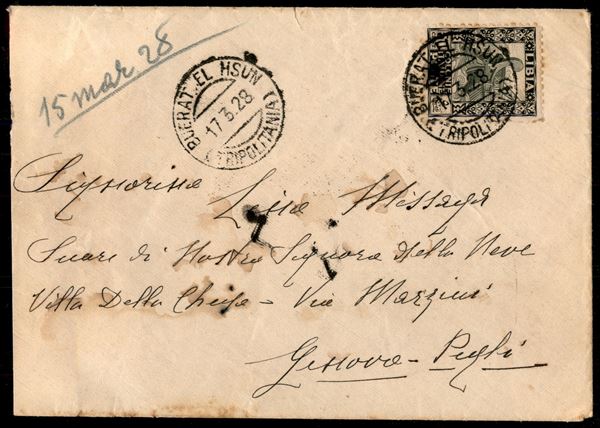 15 mar 28
BUERAT EL HSUN
17.3.28
(TRIPOLITANIA)
BUERAT EL HSUN
28
(TRIPOLITANIA)
LIBIA
Signorina Lina Messaga
Suore di Nostra Signora della Neve
Villa Della Chiesa - Via Mazzini
Genova - Pegli